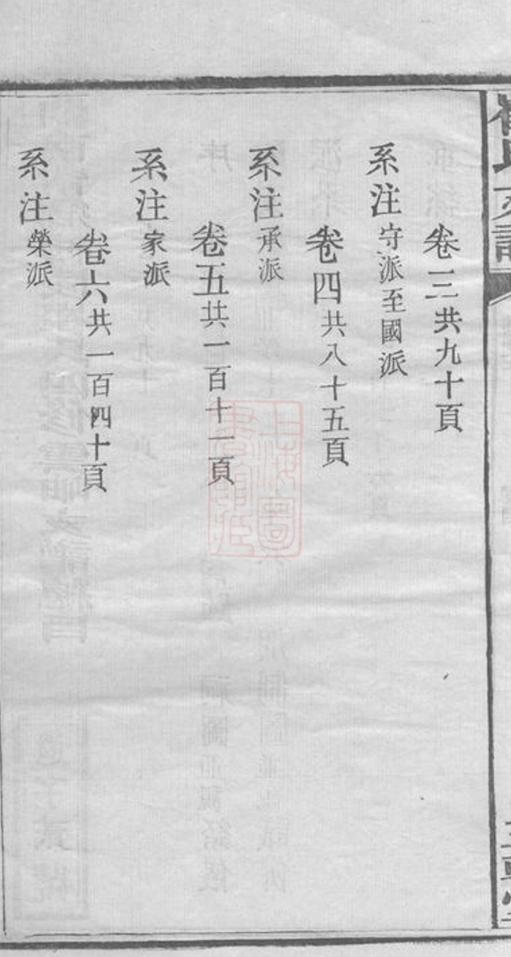 卷三共九十頁
系注守派至國派
卷四共八十五頁
系注承派
卷五共一百十一頁
系注家派
卷六共一百四十頁
系注榮派